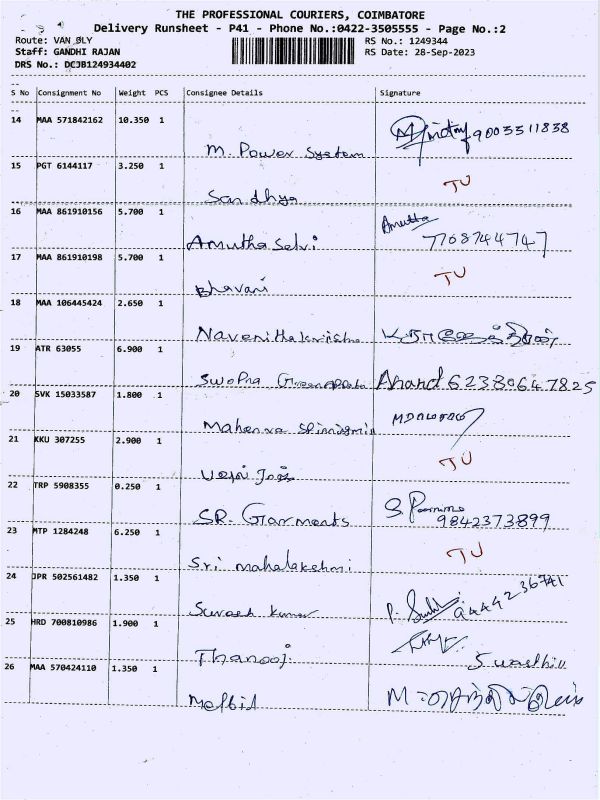 THE PROFESSIONAL COURIERS, COIMBATORE
Delivery Runsheet - P41 - Phone No.:0422-3505555 - Page No.:2
Route: VAN
RS No.: 1249344
Staff: GANDHI RAJAN
RS Date: 28-Sep-2023
DRS No.: DCJB124934402
S No Consignment No Weight PCS Consignee Details Signature
14 MAA 571842162 10.350 1
M. Power System 9003311838
15 PGT 6144117 3.250 1
Sandhya TU
16 MAA 861910156 5.700 1 Amutha
Amutha Selvi 7708744747
17 MAA 861910198 5.700 1
Bhavani TU
18 MAA 106445424 2.650 1
19 ATR 63055 6.900 1
Anand 6238064 7825
20 SVK 15033587 1.800 1
21 KKU 307255 2.900 1
TU
22 TRP 5908355 0.250 1
SR. Garments 9842373899
23 MTP 1284248 6.250 1
Sri mahalakshmi TU
24 JPR 502561482 1.350 1
Suresh kumar 9444236741
25 HRD 700810986 1.900 1
Thanooj
26 MAA 570424110 1.350 1